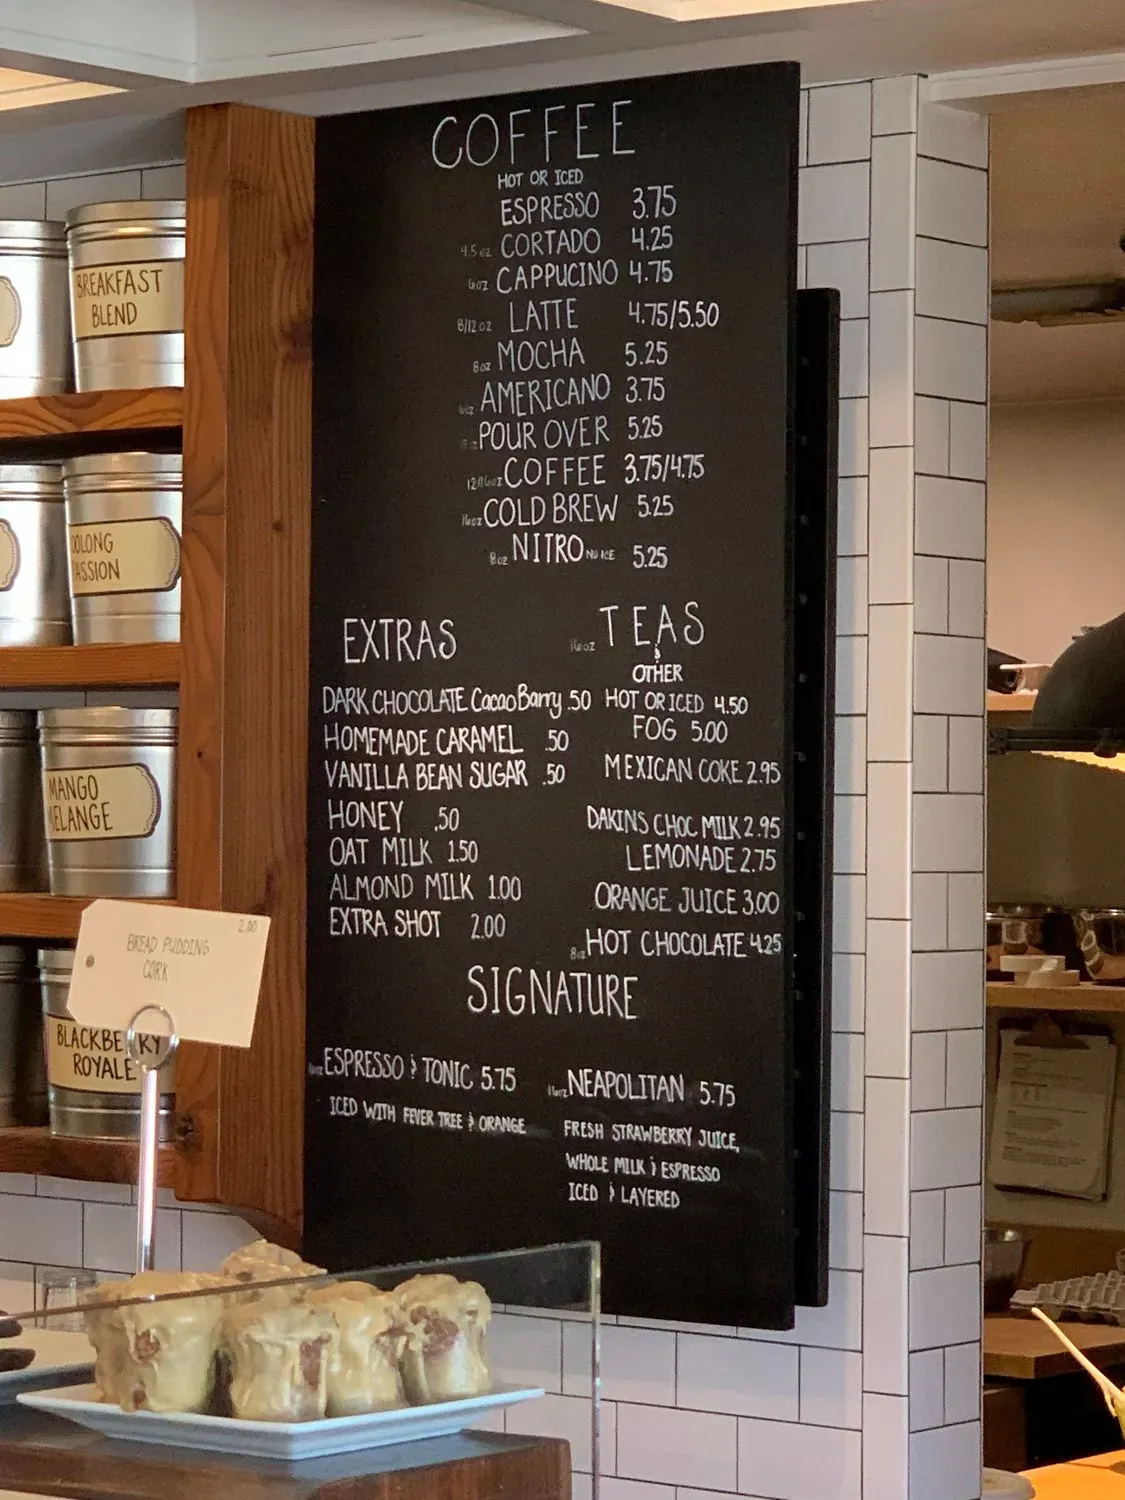 COFFEE
HOT OR ICED
ESPRESSO 3.75
4.5 oz CORTADO 4.25
6oz CAPPUCINO 4.75
8/12 oz LATTE 4.75/5.50
8oz MOCHA 5.25
AMERICANO 3.75
POUR OVER 5.25
12/16oz COFFEE 3.75/4.75
16oz COLD BREW 5.25
8oz NITRO NO ICE 5.25
EXTRAS
DARK CHOCOLATE Cacao Barry .50
HOMEMADE CARAMEL .50
VANILLA BEAN SUGAR .50
HONEY .50
OAT MILK 1.50
ALMOND MILK 1.00
EXTRA SHOT 2.00
16oz TEAS
&
OTHER
HOT OR ICED 4.50
FOG 5.00
MEXICAN COKE 2.95
DAKINS CHOC MILK 2.95
LEMONADE 2.75
ORANGE JUICE 3.00
8oz HOT CHOCOLATE 4.25
SIGNATURE
ESPRESSO & TONIC 5.75
ICED WITH FEVER TREE & ORANGE
16oz NEAPOLITAN 5.75
FRESH STRAWBERRY JUICE,
WHOLE MILK & ESPRESSO
ICED & LAYERED
BREAKFAST
BLEND
OOLONG
PASSION
MANGO
MELANGE
BLACKBERRY
ROYALE
2.00
BREAD PUDDING
CORK